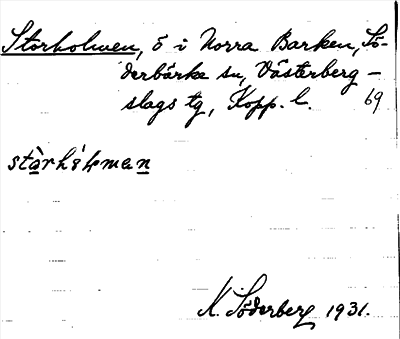 Storholmen, ö i Norra Barken, Sö-
derbärke sn, Västerberg-
slags tg, Kopp. l. 69
stàrhólman
K. Söderberg 1931.